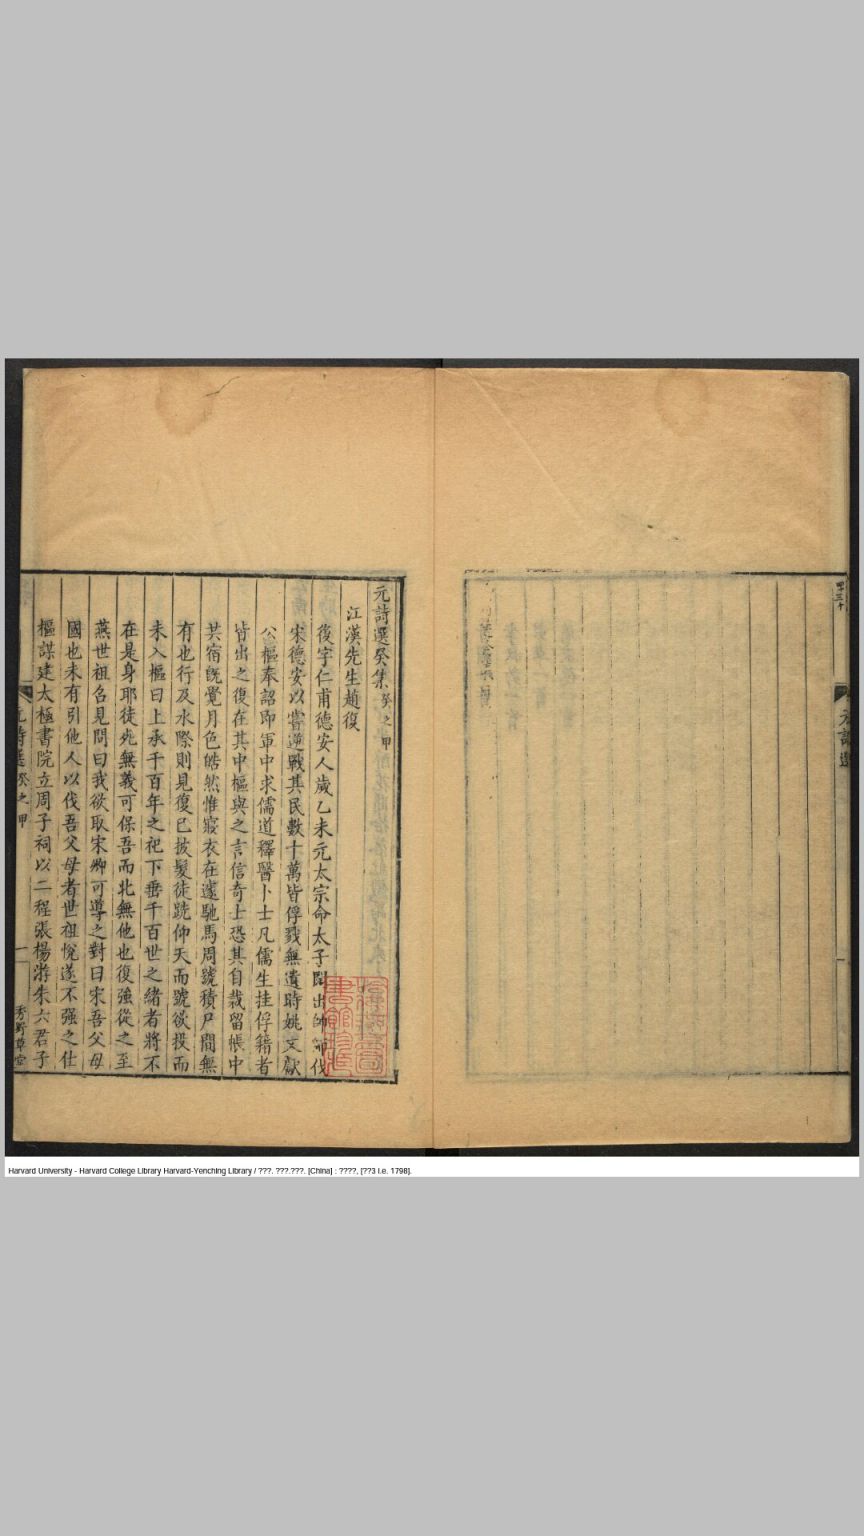 元詩選
元詩選癸集 癸之甲
江漢先生趙復
復字仁甫德安人歲乙未元太宗命太子闊出帥師伐
宋德安以嘗逆戰其民數十萬皆俘戮無遺時姚文獻
公樞奉詔即軍中求儒道釋醫卜士凡儒生挂俘籍者
皆出之復在其中樞與之言信奇士恐其自裁留帳中
共宿旣覺月色皓然惟寢衣在遽馳馬周號積尸間無
有也行及水際則見復已披髮徒跣仰天而號欲投而
未入樞曰上承千百年之祀下垂千百世之緒者將不
在是身耶徒死無義可保吾而北無他也復強從之至
燕世祖召見問曰我欲取宋卿可導之對曰宋吾父母
國也未有引他人以伐吾父母者世祖悅遂不强之仕
樞謀建太極書院立周子祠以二程張楊游朱六君子
元詩選 癸之甲 一 秀野草堂
Harvard University - Harvard College Library Harvard-Yenching Library / ???. ???.???. [China] : ????, [??3 i.e. 1798].